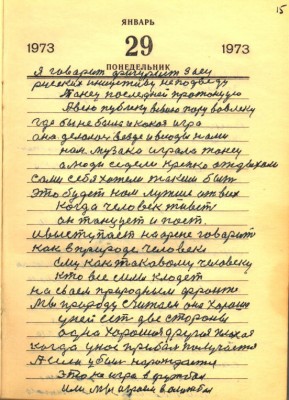 15
ЯНВАРЬ
1973 29 1973
ПОНЕДЕЛЬНИК
Я говорит фигурист Заец
русских ни неподведу
Танец последней
Я всю публику
где бы не была какая игра
она делалась везде и всюду нами
нам музыка играла танец
а люди сидели крепко отдыхали
сами себя хотели такими быть
Это будет нам лучше от вих
Когда человек живет
он танцует и поет
И выступает на арене говорит
как в природе человек
ему как таковому человеку
кто все силы кладет
на своем природным фронте
Мы природу считаем она хорошая
у ней есть две стороны
одна хорошая другая плохая
когда у нас прибыл получается
А если убыл нарождается
Это как игра в футбол
Или мы играем в